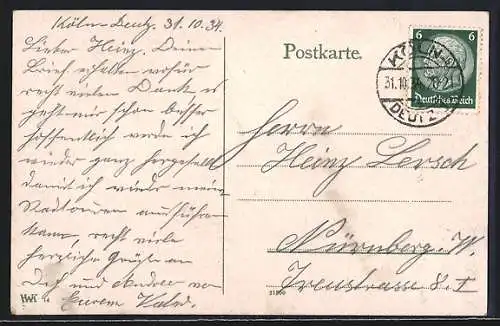 Köln-Deutz. 31.10.34.
Lieber Heinz. Deinen
Brief erhalten wofür
recht vielen Dank es
geht mir schon besser
hoffentlich werde ich
wieder ganz hergestellt
damit ich wieder meine
Radtouren ausführen
kann, recht viele
herzliche Grüße an
Dich und von
Eurem
HWK
Postkarte.
6 6
Deutsches Reich
KÖLN
31.10.34
DEUTZ
Herrn
Heinz Lersch
Nürnberg. W.
8. I